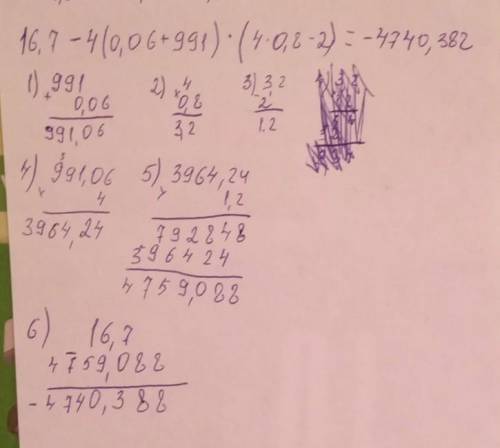 16,7 - 4(0,06+991) · (4·0,8-2) = -4740,388
1) 991
+ 0,06
991,06
2) 4
× 0,8
3,2
3) 3,2
- 2
1,2
4) 991,06
× 4
3964,24
5) 3964,24
× 1,2
792848
396424
4759,088
6) 16,7
- 4759,088
-4740,388